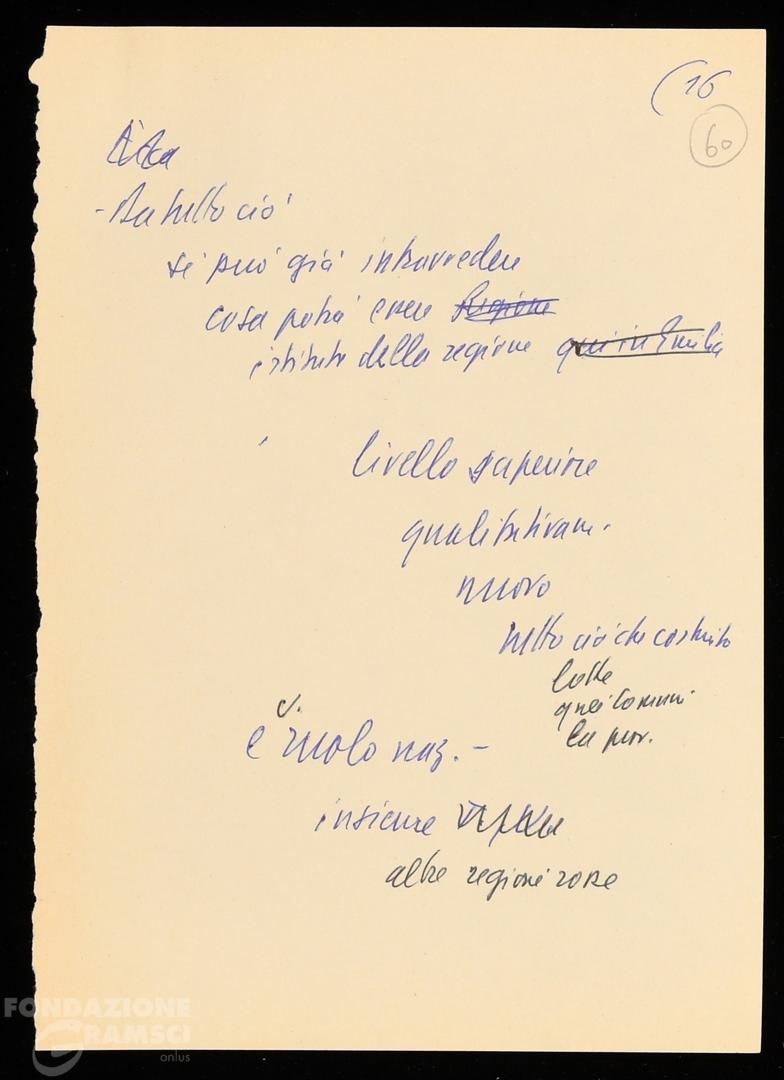 (16
60
- Da tutto ciò
si può già intravvedere
cosa potrà essere Regione
istituto della regione qui in Emilia
livello superiore
qualitativam.
nuovo
tutto ciò che costruito
lotte
quei Comuni
la prov.
e ruolo naz. -
insieme
altre regioni rosse
FONDAZIONE
GRAMSCI
onlus